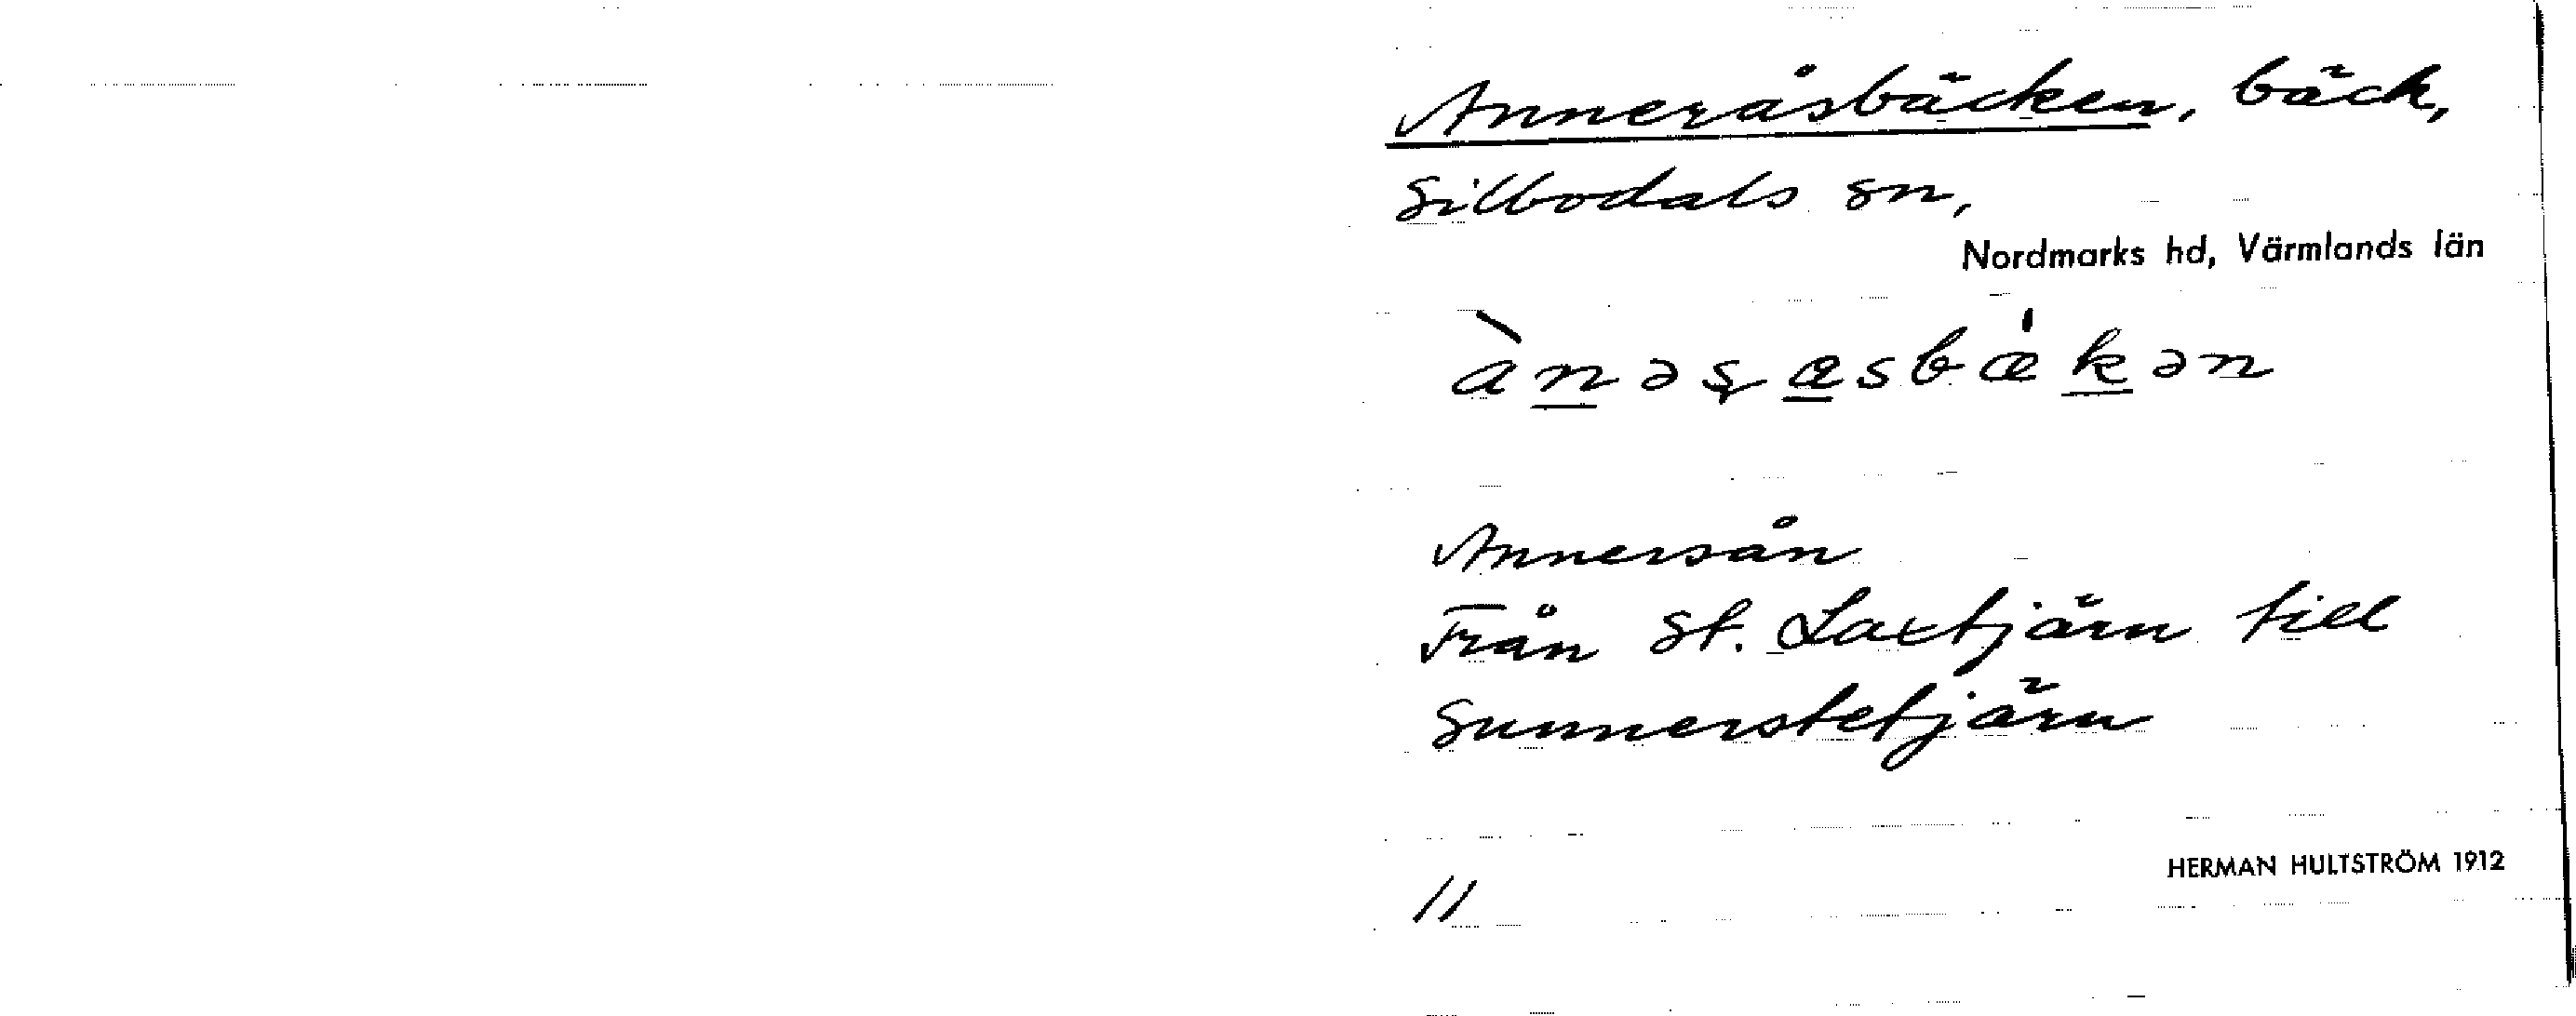 Anneråsbäcken, bäck,
Silbodals sn,
Nordmarks hd, Värmlands län
Annersån
Från St. Laxtjärn till
Sunnerstetjärn
HERMAN HULTSTRÖM 1912
11